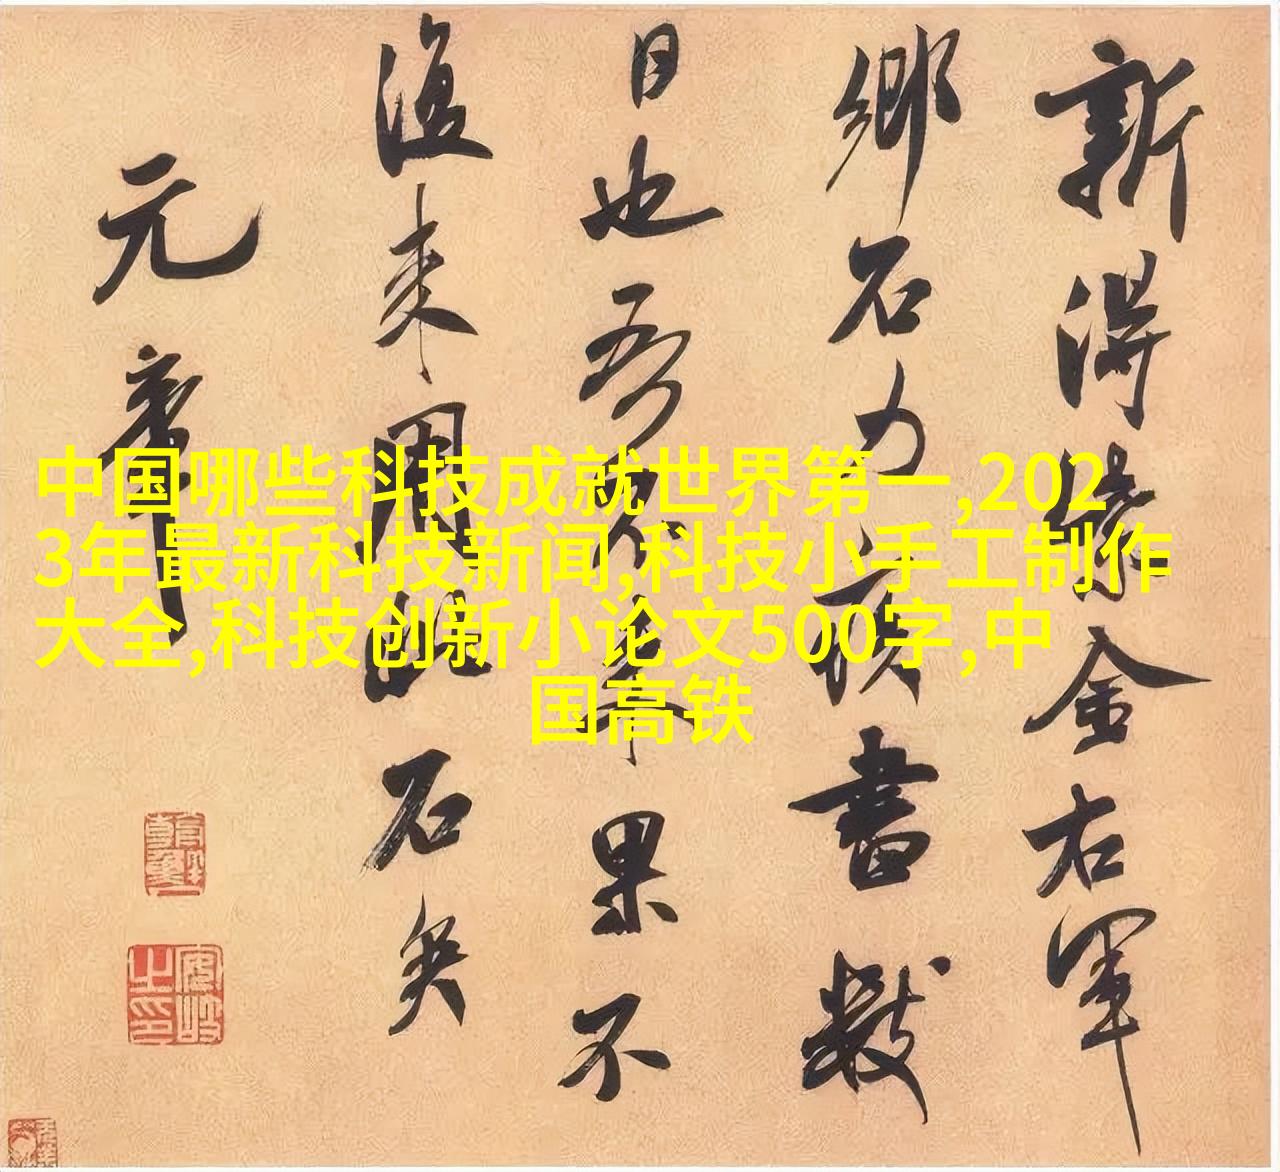 新得紫金右軍
鄉石力疾書數
日也吾不來果不
復来用此石矣
元章
中国哪些科技成就世界第一,202
3年最新科技新闻,科技小手工制作
大全,科技创新小论文500字,中
国高铁